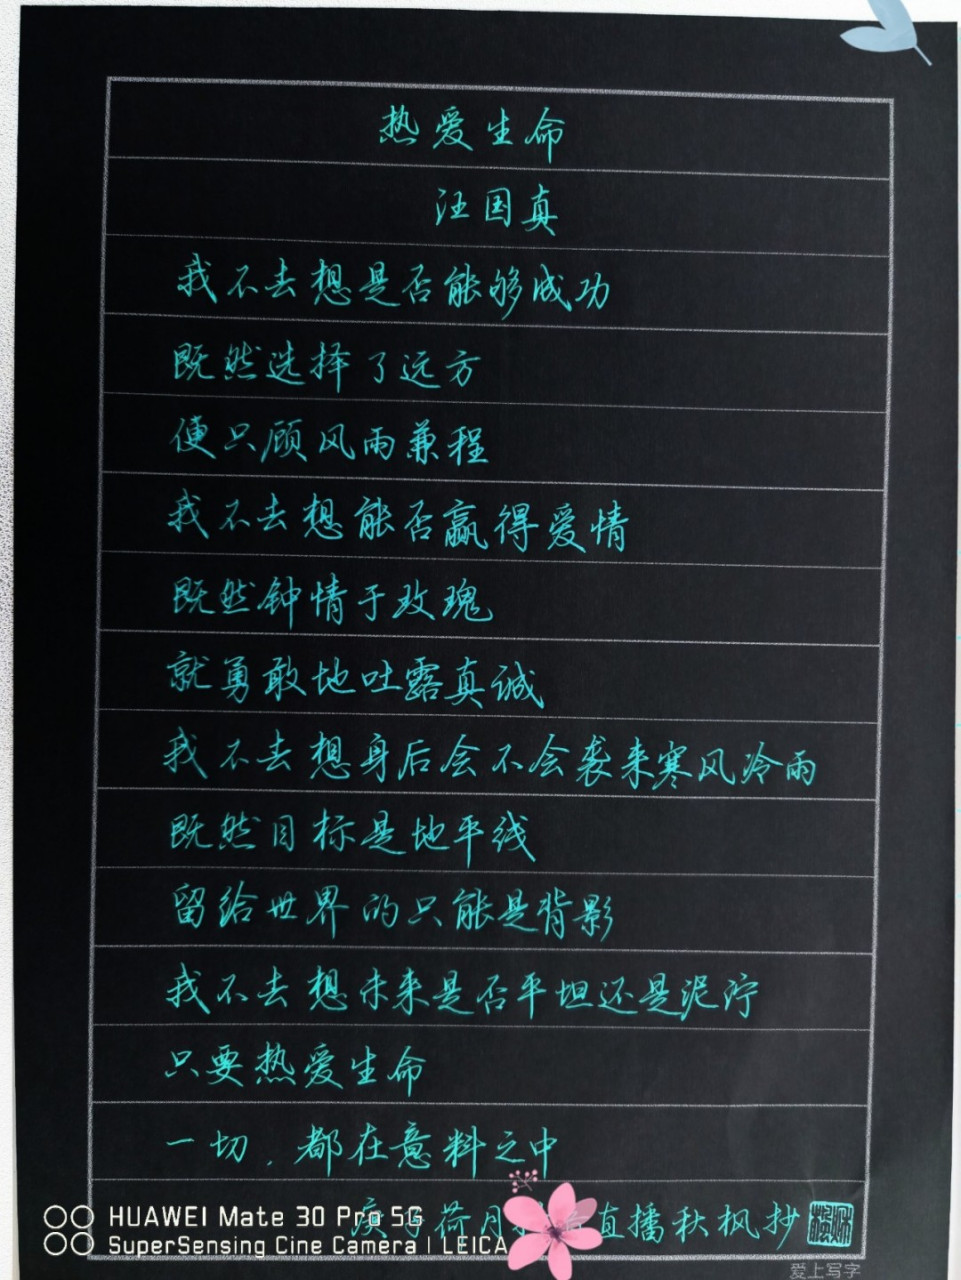 热爱生命
汪国真
我不去想是否能够成功
既然选择了远方
便只顾风雨兼程
我不去想能否赢得爱情
既然钟情于玫瑰
就勇敢地吐露真诚
我不去想身后会不会袭来寒风冷雨
既然目标是地平线
留给世界的只能是背影
我不去想未来是否平坦还是泥泞
只要热爱生命
一切,都在意料之中
庚 荷月 直播秋枫抄
HUAWEI Mate 30 Pro 5G
SuperSensing Cine Camera | LEICA
爱上写字